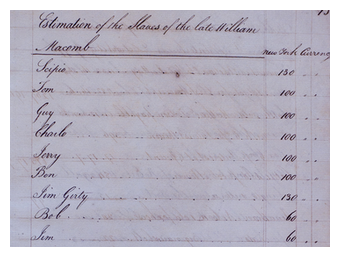 13
Estemation of the Slaves of the late William
Macomb
New York Currency
Scipio 130 " "
Tom 100 " "
Guy 100 " "
Charlo 100 " "
Jerry 100 " "
Ben 100 " "
Jim Girty 130 " "
Bob 60 " "
Jem 60 " "